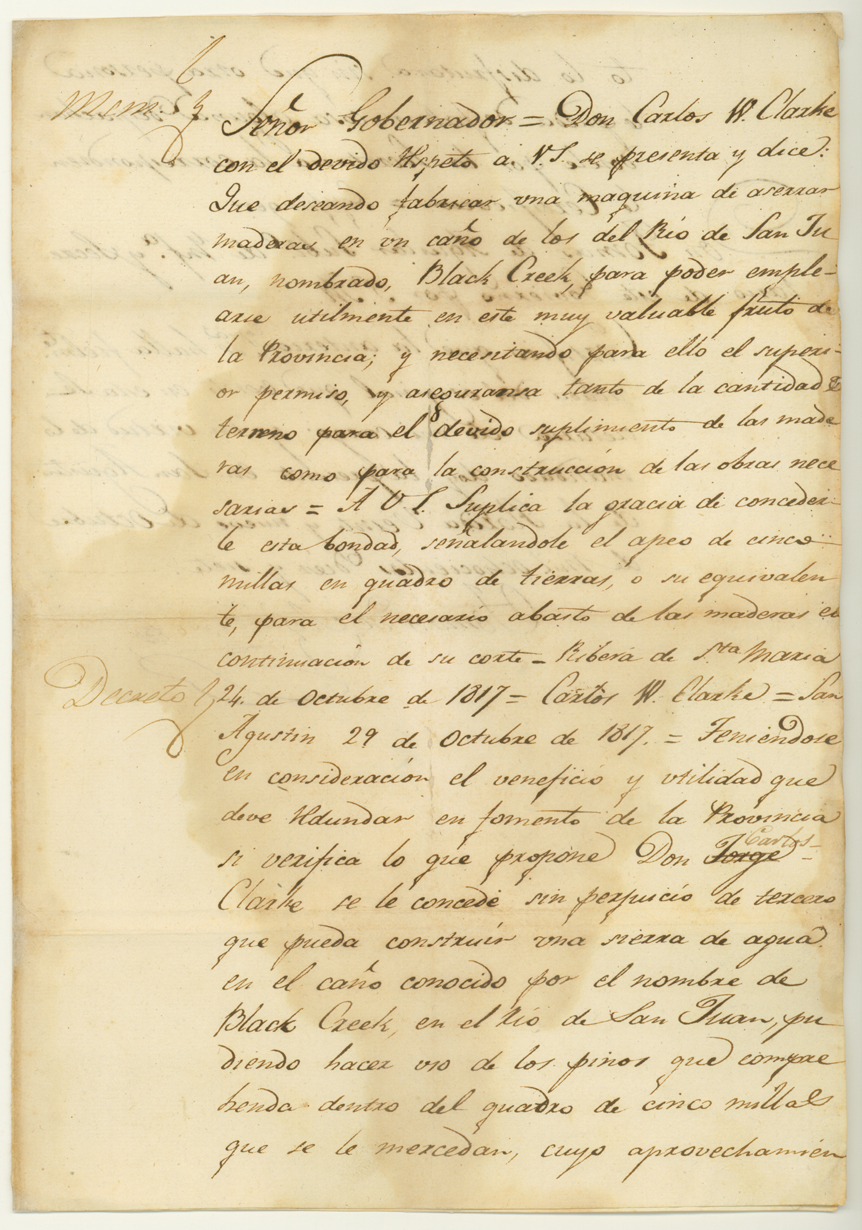 Mem.l
Señor Gobernador = Don Carlos W. Clarke
con el devido respeto a V.S. se presenta y dice:
Que deseando fabricar vna maquina de aserrar
maderas en vn caño de los del Rio de San Ju
an, nombrado, Black Creek, para poder emple-
arse utilmente en este muy valuable fruto de
la Provincia; y necesitando para ello el superi-
or permiso, y aseguransa tanto de la cantidad de
terreno para el devido suplimento de las made
ras como para la construcción de las obras nece
sarias = A V S. Suplica la gracia de conceder-
le esta bondad, señalandole el apeo de cinco
millas en quadro de tierras, o su equivalen
te, para el necesario abasto de las maderas en
continuación de su corte = Ribera de Sta Maria
Decreto 24. de Octubre de 1817 = Carlos W. Clarke = San
Agustin 29 de Octubre de 1817. = Teniendose
en consideración el veneficio y vtilidad que
deve redundar en fomento de la Provincia
si verifica lo que propone Don Jorge Carlos
Clarke se le concede sin perjuicio de tercero
que pueda construir vna sierra de agua
en el caño conocido por el nombre de
Black Creek, en el Rio de San Juan, pu
diendo hacer vso de los pinos que compre
henda dentro del quadro de cinco millas
que se le mercedan, cuyo aprovechamien